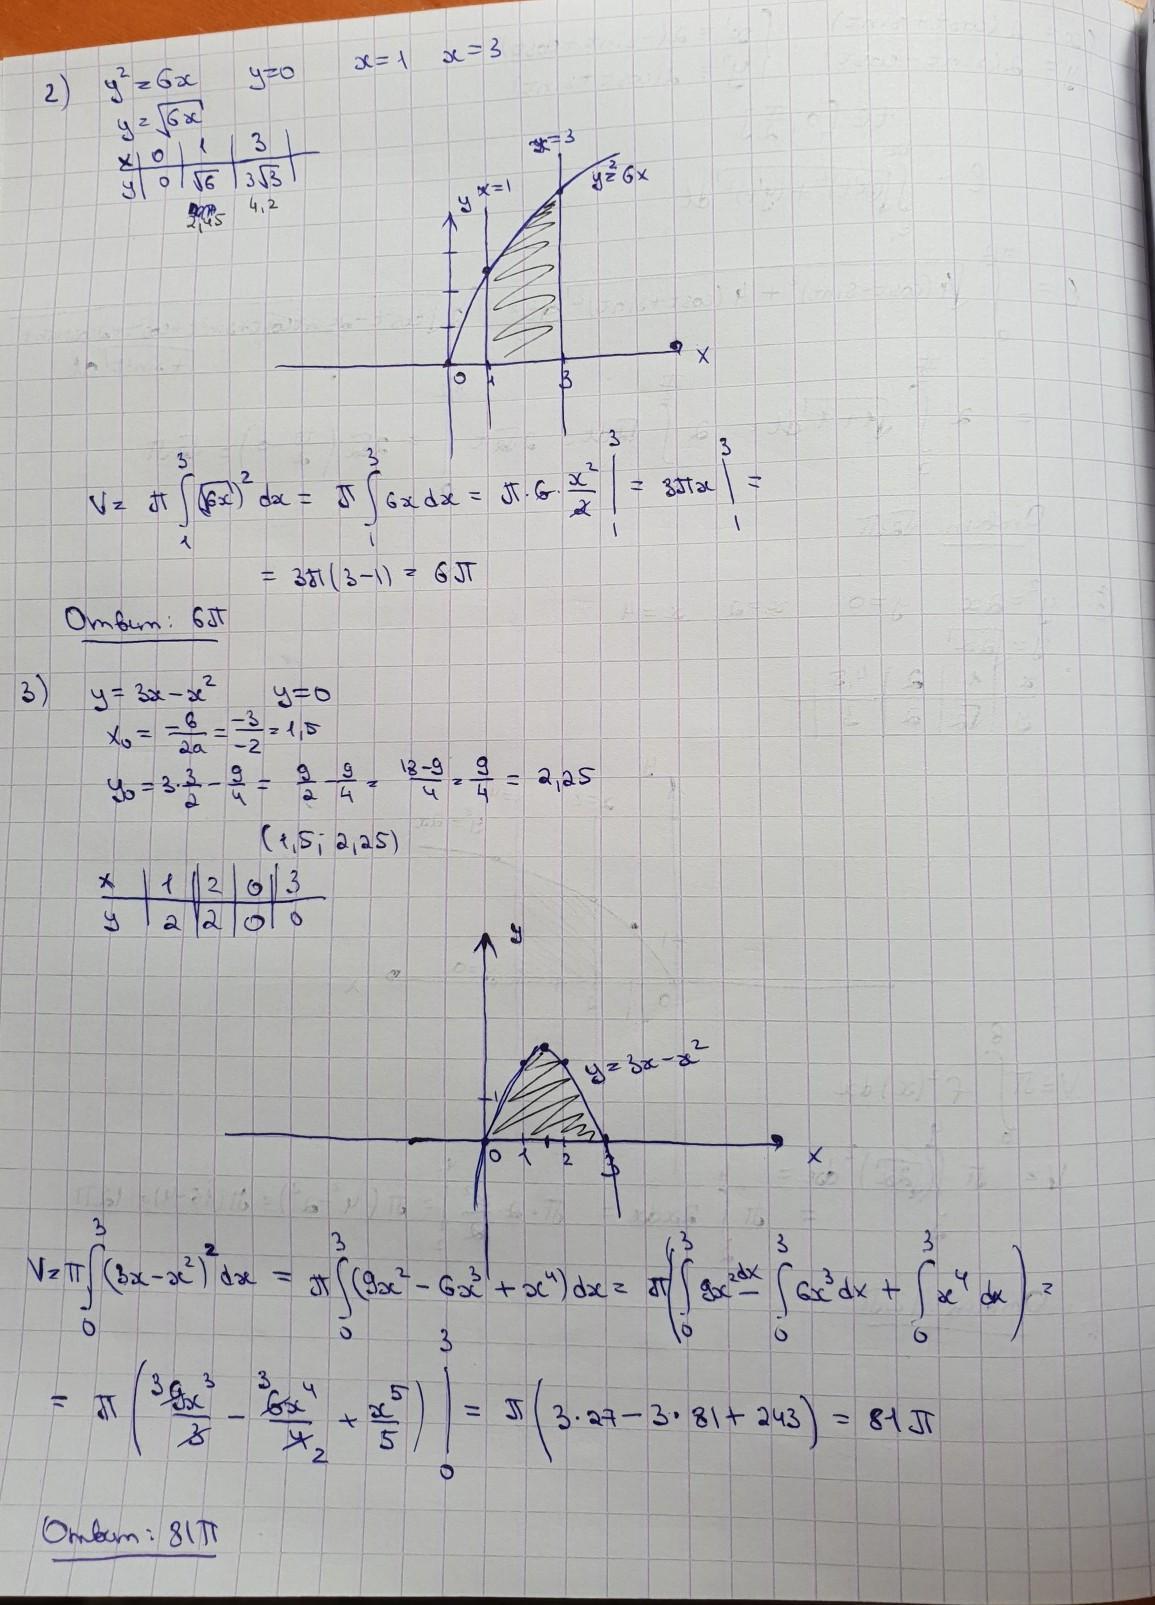 2) y² = 6x y=0 x=1 x=3
y = √6x
x | 0 | 1 | 3 |
y | 0 | √6 | 3√3
2,45 4,2
x=3
y x=1 y²=6x
0 1 3 x
V = π ∫₁³ (√6x)² dx = π ∫₁³ 6x dx = π·6·x²/2 |₁³ = 3πx |₁³ =
= 3π(3-1) = 6π
Ответ: 6π
3) y = 3x - x² y=0
x₀ = -в/2a = -3/-2 = 1,5
y₀ = 3·3/2 - 9/4 = 9/2 - 9/4 = 18-9/4 = 9/4 = 2,25
(1,5; 2,25)
x | 1 | 2 | 0 | 3
y | 2 | 2 | 0 | 0
y
y = 3x - x²
1
0 1 2 3 x
V = π ∫₀³ (3x - x²)² dx = π ∫₀³ (9x² - 6x³ + x⁴) dx = π( ∫₀³ 9x² dx - ∫₀³ 6x³ dx + ∫₀³ x⁴ dx ) =
= π ( ³9x³/3 - ³6x⁴/4₂ + x⁵/5 ) |₀³ = π (3·27 - 3·81 + 243) = 81π
Ответ: 81π